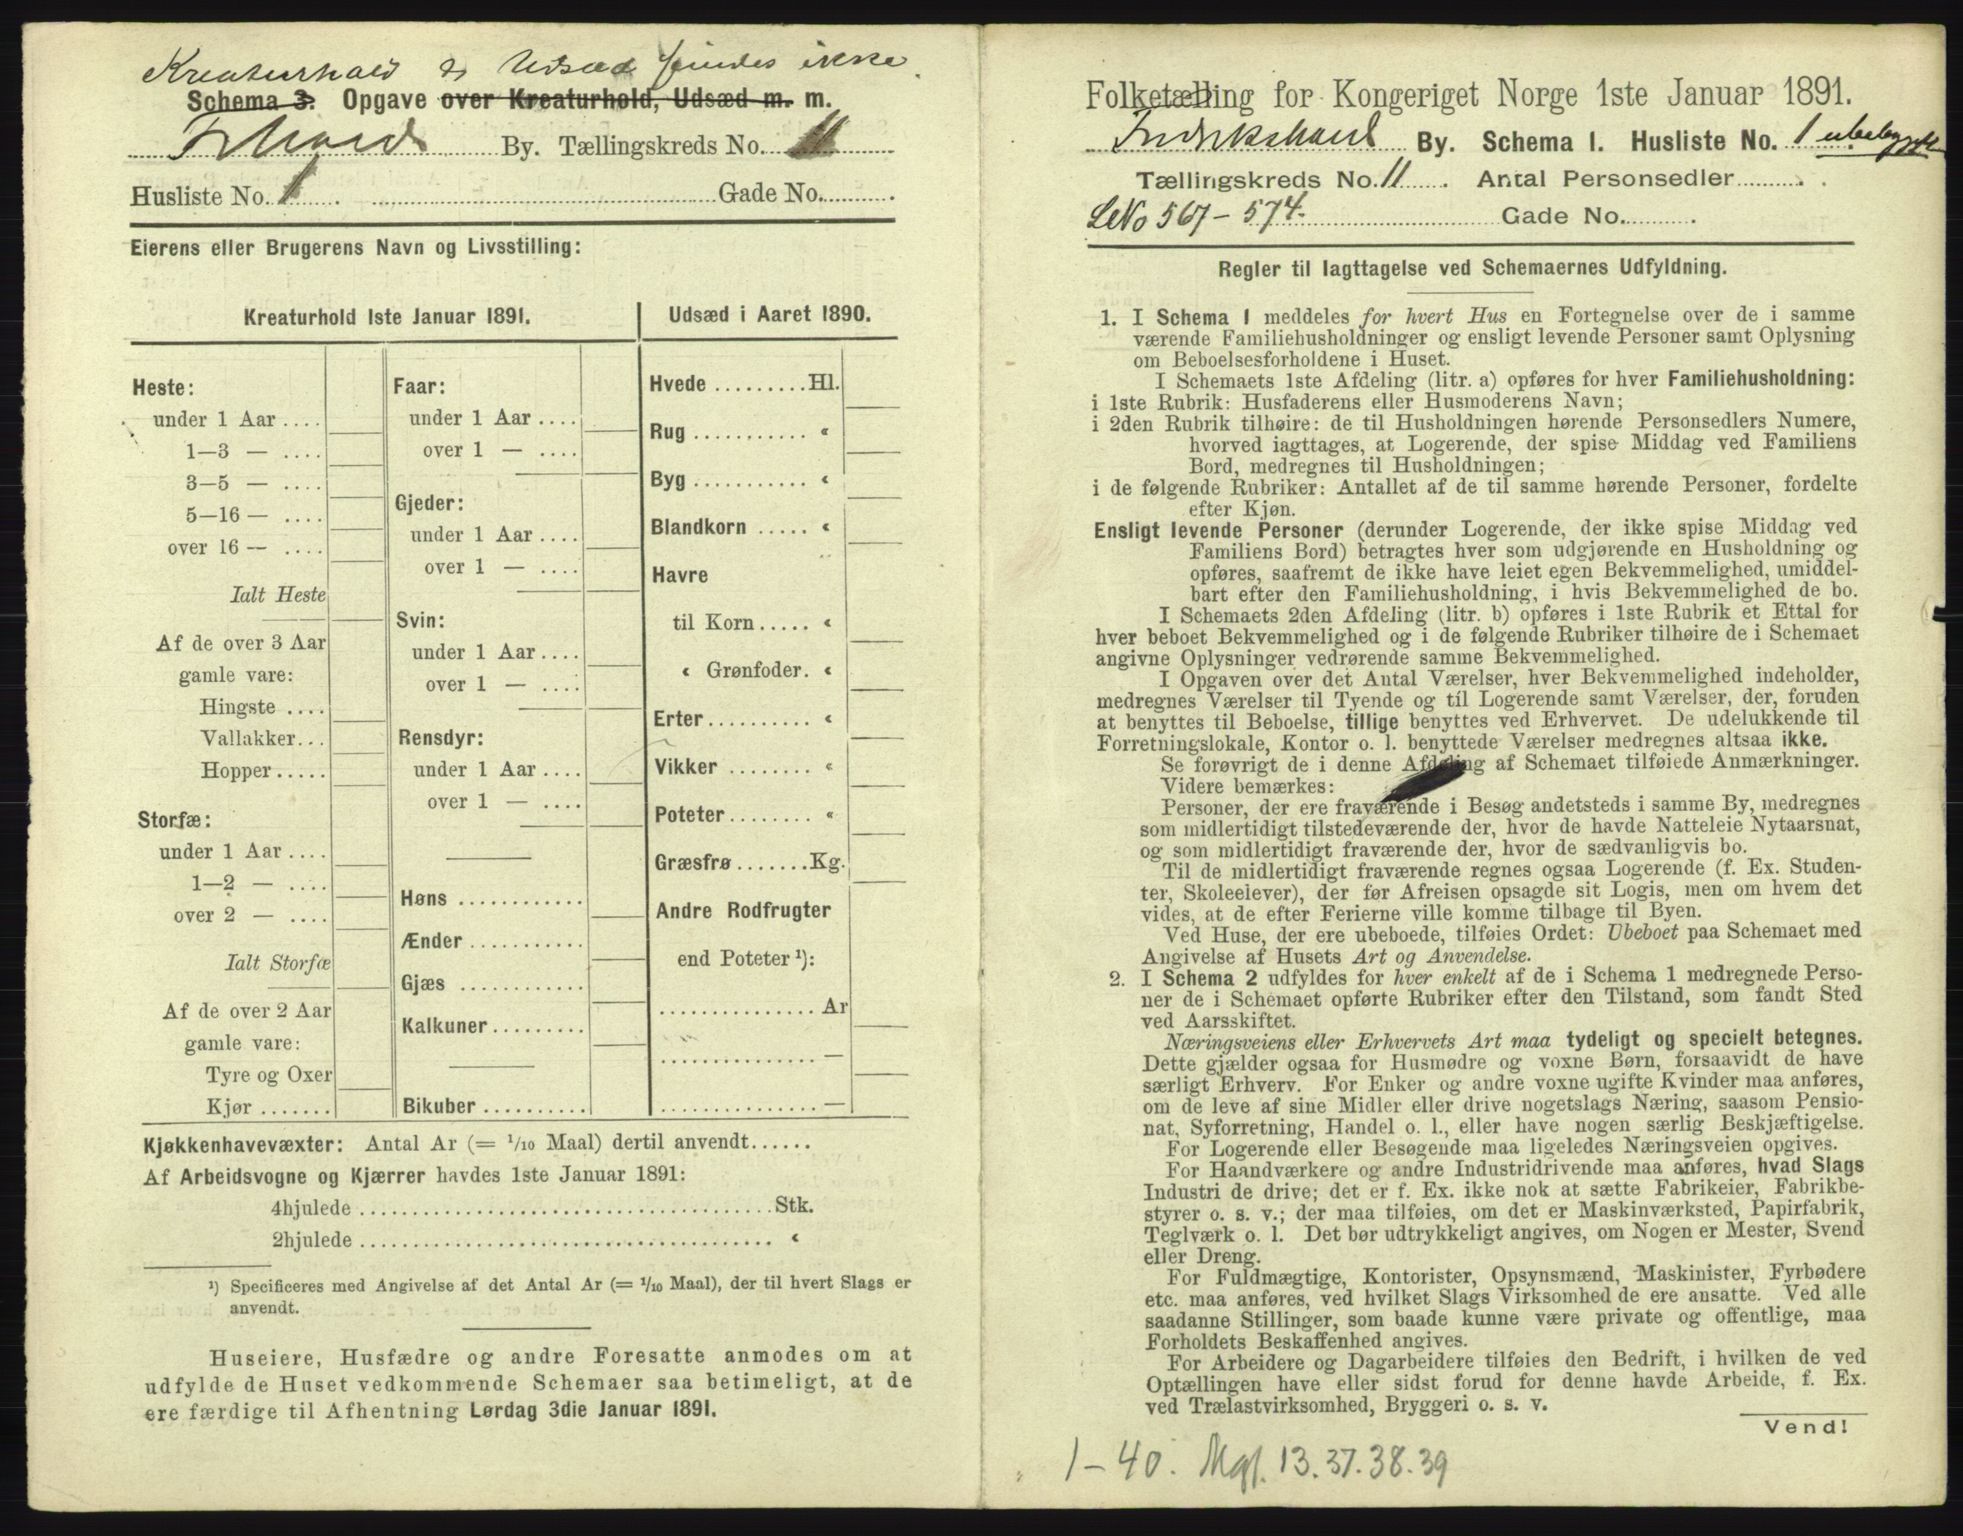 Kreaturhold & Udsæd findes ikke.
Schema 3. Opgave over Kreaturhold, Udsæd m. m.
Frhald By. Tællingskreds No. 11
Husliste No. 1. Gade No.
Eierens eller Brugerens Navn og Livsstilling:
Kreaturhold 1ste Januar 1891.
Heste:
under 1 Aar ....
1—3 — ....
3—5 — ....
5—16 — ....
over 16 — ....
Ialt Heste
Af de over 3 Aar
gamle vare:
Hingste ....
Vallakker...
Hopper.....
Storfæ:
under 1 Aar ....
1—2 — ....
over 2 — ....
Ialt Storfæ
Af de over 2 Aar
gamle vare:
Tyre og Oxer
Kjør .......
Faar:
under 1 Aar ....
over 1 — ....
Gjeder:
under 1 Aar ....
over 1 — ....
Svin:
under 1 Aar ....
over 1 — ....
Rensdyr:
under 1 Aar ....
over 1 — ....
Høns ............
Ænder ...........
Gjæs ............
Kalkuner.........
Bikuber ..........
Udsæd i Aaret 1890.
Hvede .........Hl.
Rug ........... «
Byg ........... «
Blandkorn ..... «
Havre
til Korn..... «
« Grønfoder. «
Erter.......... «
Vikker ........ «
Poteter ........ «
Græsfrø .......Kg.
Andre Rodfrugter
end Poteter ¹):
............... Ar
............... —
............... —
Kjøkkenhavevæxter: Antal Ar (= 1/10 Maal) dertil anvendt......
Af Arbeidsvogne og Kjærrer havdes 1ste Januar 1891:
4hjulede ........................................Stk.
2hjulede ........................................ «
¹) Specificeres med Angivelse af det Antal Ar (= 1/10 Maal), der til hvert Slags er
anvendt.
Huseiere, Husfædre og andre Foresatte anmodes om at
udfylde de Huset vedkommende Schemaer saa betimeligt, at de
ere færdige til Afhentning Lørdag 3die Januar 1891.
Folketælling for Kongeriget Norge 1ste Januar 1891.
Fredrikshald By. Schema 1. Husliste No. 1 ubebygget
Tællingskreds No. 11. Antal Personsedler
LNo 567-574. Gade No.
Regler til Iagttagelse ved Schemaernes Udfyldning.
1. I Schema 1 meddeles for hvert Hus en Fortegnelse over de i samme
værende Familiehusholdninger og ensligt levende Personer samt Oplysning
om Beboelsesforholdene i Huset.
I Schemaets 1ste Afdeling (litr. a) opføres for hver Familiehusholdning:
i 1ste Rubrik: Husfaderens eller Husmoderens Navn;
i 2den Rubrik tilhøire: de til Husholdningen hørende Personsedlers Numere,
hvorved iagttages, at Logerende, der spise Middag ved Familiens
Bord, medregnes til Husholdningen;
i de følgende Rubriker: Antallet af de til samme hørende Personer, fordelte
efter Kjøn.
Ensligt levende Personer (derunder Logerende, der ikke spise Middag ved
Familiens Bord) betragtes hver som udgjørende en Husholdning og
opføres, saafremt de ikke have leiet egen Bekvemmelighed, umiddel-
bart efter den Familiehusholdning, i hvis Bekvemmelighed de bo.
I Schemaets 2den Afdeling (litr. b) opføres i 1ste Rubrik et Ettal for
hver beboet Bekvemmelighed og i de følgende Rubriker tilhøire de i Schemaet
angivne Oplysninger vedrørende samme Bekvemmelighed.
I Opgaven over det Antal Værelser, hver Bekvemmelighed indeholder,
medregnes Værelser til Tyende og til Logerende samt Værelser, der, foruden
at benyttes til Beboelse, tillige benyttes ved Erhvervet. De udelukkende til
Forretningslokale, Kontor o. l. benyttede Værelser medregnes altsaa ikke.
Se forøvrigt de i denne Afdeling af Schemaet tilføiede Anmærkninger.
Videre bemærkes:
Personer, der ere fraværende i Besøg andetsteds i samme By, medregnes
som midlertidigt tilstedeværende der, hvor de havde Natteleie Nytaarsnat,
og som midlertidigt fraværende der, hvor de sædvanligvis bo.
Til de midlertidigt fraværende regnes ogsaa Logerende (f. Ex. Studen-
ter, Skoleelever), der før Afreisen opsagde sit Logis, men om hvem det
vides, at de efter Ferierne ville komme tilbage til Byen.
Ved Huse, der ere ubeboede, tilføies Ordet: Ubeboet paa Schemaet med
Angivelse af Husets Art og Anvendelse.
2. I Schema 2 udfyldes for hver enkelt af de i Schema 1 medregnede Perso-
ner de i Schemaet opførte Rubriker efter den Tilstand, som fandt Sted
ved Aarsskiftet.
Næringsveiens eller Erhvervets Art maa tydeligt og specielt betegnes.
Dette gjælder ogsaa for Husmødre og voxne Børn, forsaavidt de have
særligt Erhverv. For Enker og andre voxne ugifte Kvinder maa anføres,
om de leve af sine Midler eller drive nogetslags Næring, saasom Pensio-
nat, Syforretning, Handel o. l., eller have nogen særlig Beskjæftigelse.
For Logerende eller Besøgende maa ligeledes Næringsveien opgives.
For Haandværkere og andre Industridrivende maa anføres, hvad Slags
Industri de drive; det er f. Ex. ikke nok at sætte Fabrikeier, Fabrikbe-
styrer o. s. v.; der maa tilføies, om det er Maskinværksted, Papirfabrik,
Teglværk o. l. Det bør udtrykkeligt angives, om Nogen er Mester, Svend
eller Dreng.
For Fuldmægtige, Kontorister, Opsynsmænd, Maskinister, Fyrbødere
etc. maa anføres, ved hvilket Slags Virksomhed de ere ansatte. Ved alle
saadanne Stillinger, som baade kunne være private og offentlige, maa
Forholdets Beskaffenhed angives.
For Arbeidere og Dagarbeidere tilføies den Bedrift, i hvilken de ved
Optællingen have eller sidst forud for denne havde Arbeide, f. Ex.
ved Trælastvirksomhed, Bryggeri o. s. v.
Vend!
1-40. Mgl. 13.37.38.39